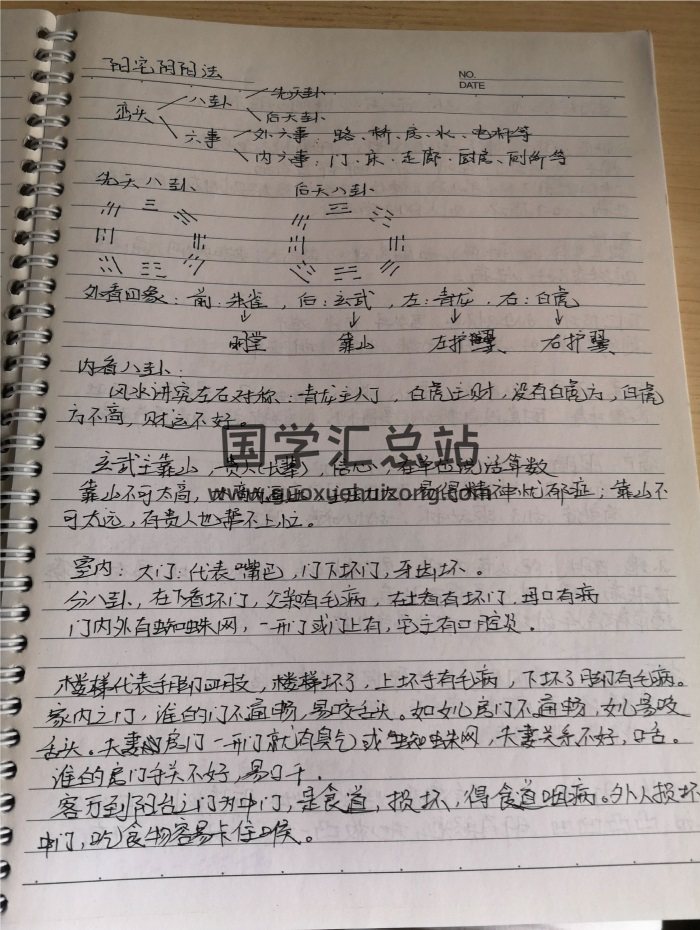 阳宅阴阳法
NO.
DATE
峦头 八卦 先天卦
后天卦
六事 外六事：路、桥、房、水、电杆等
内六事：门、床、走廊、厨房、厕所等
先天八卦 后天八卦
外看四象：前：朱雀，后：玄武，左：青龙，右：白虎
明堂 靠山 左护翼 右护翼
内看八卦：
风水讲究左右对称：青龙主人丁，白虎主财，没有白虎方，白虎
方不高，财运不好。
国学汇总站
玄武主靠山，贵人(长辈)，信心，在单位说话算数
www.guoxuehuizong.com
靠山不可太高，易得精神忧郁症；靠山不
可太远，有贵人也帮不上忙。
室内：大门：代表嘴巴，门下坏门，牙齿坏。
分八卦，在下看坏门，父亲有毛病，在上看有坏门，母口有病
门内外有蜘蛛网，一开门或门上有，宅主有口腔炎。
楼梯代表手脚四肢，楼梯坏了，上坏手有毛病，下坏了脚有毛病。
家内之门，谁的门不通畅，易咬舌头。如女儿房门不通畅，女儿易咬
舌头。夫妻房门一开门就有臭气或蜘蛛网，夫妻关系不好，口舌。
谁的房门开关不好，易口干。
客厅到阳台之门为中门，是食道，损坏，得食道咽病。外人损坏
中门，吃食物容易卡住喉。